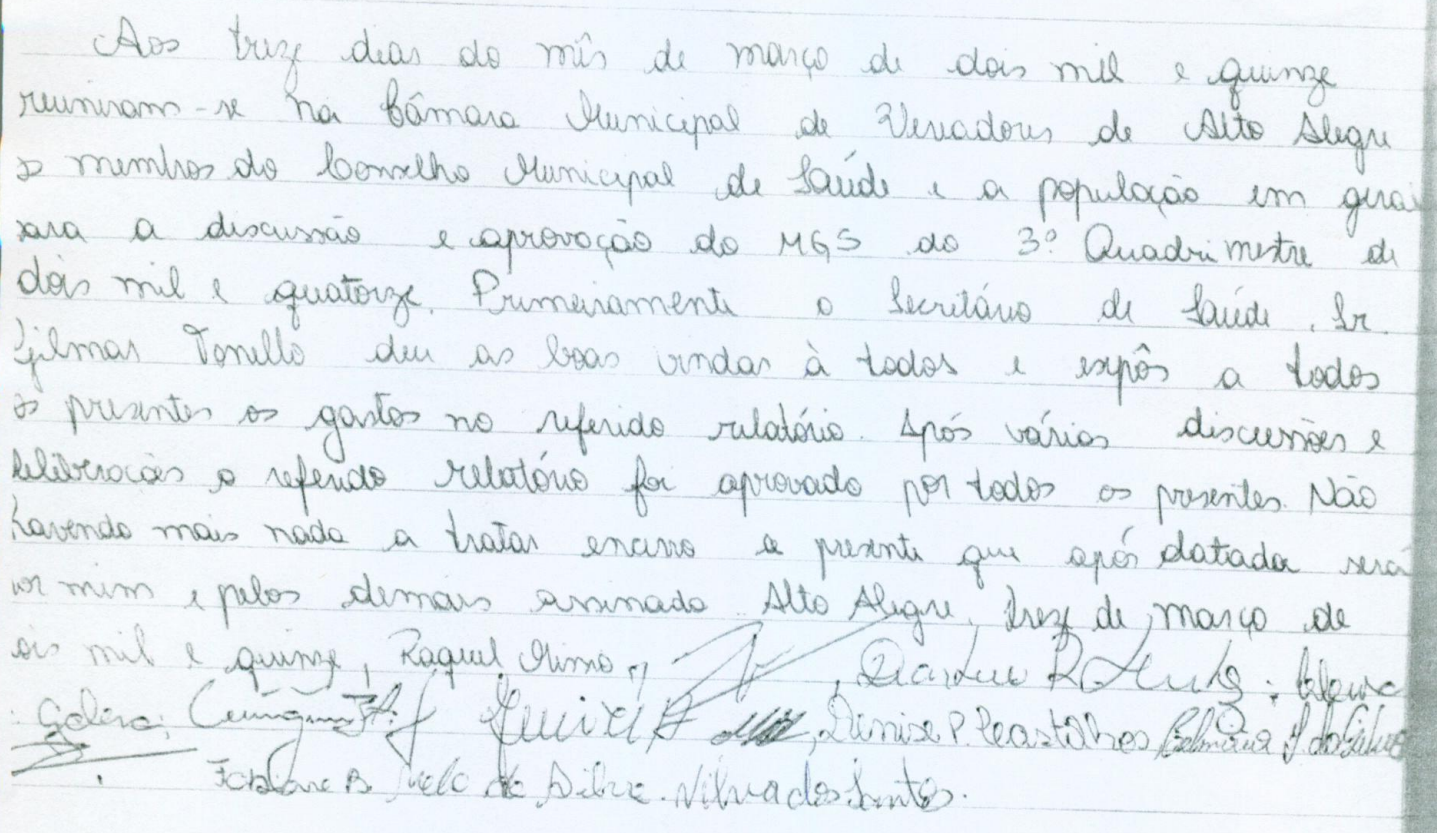 Aos treze dias do mês de março de dois mil e quinze
reuniram-se na Câmara Municipal de Vereadores de Alto Alegre
os membros do Conselho Municipal de Saúde e a população em geral
para a discussão e aprovação do MGS do 3º Quadrimestre de
dois mil e quatorze. Primeiramente o Secretário de Saúde, Sr.
Gilmar Tonello deu as boas vindas à todos e expôs a todos
os presentes os gastos no referido relatório. Após várias discussões e
deliberações o referido relatório foi aprovado por todos os presentes. Não
havendo mais nada a tratar encerro a presente que após datada será
por mim e pelos demais assinada. Alto Alegre, treze de março de
dois mil e quinze, Raquel
Denise P.
Fabiane B. Melo da Silva. Nilva dos Santos.